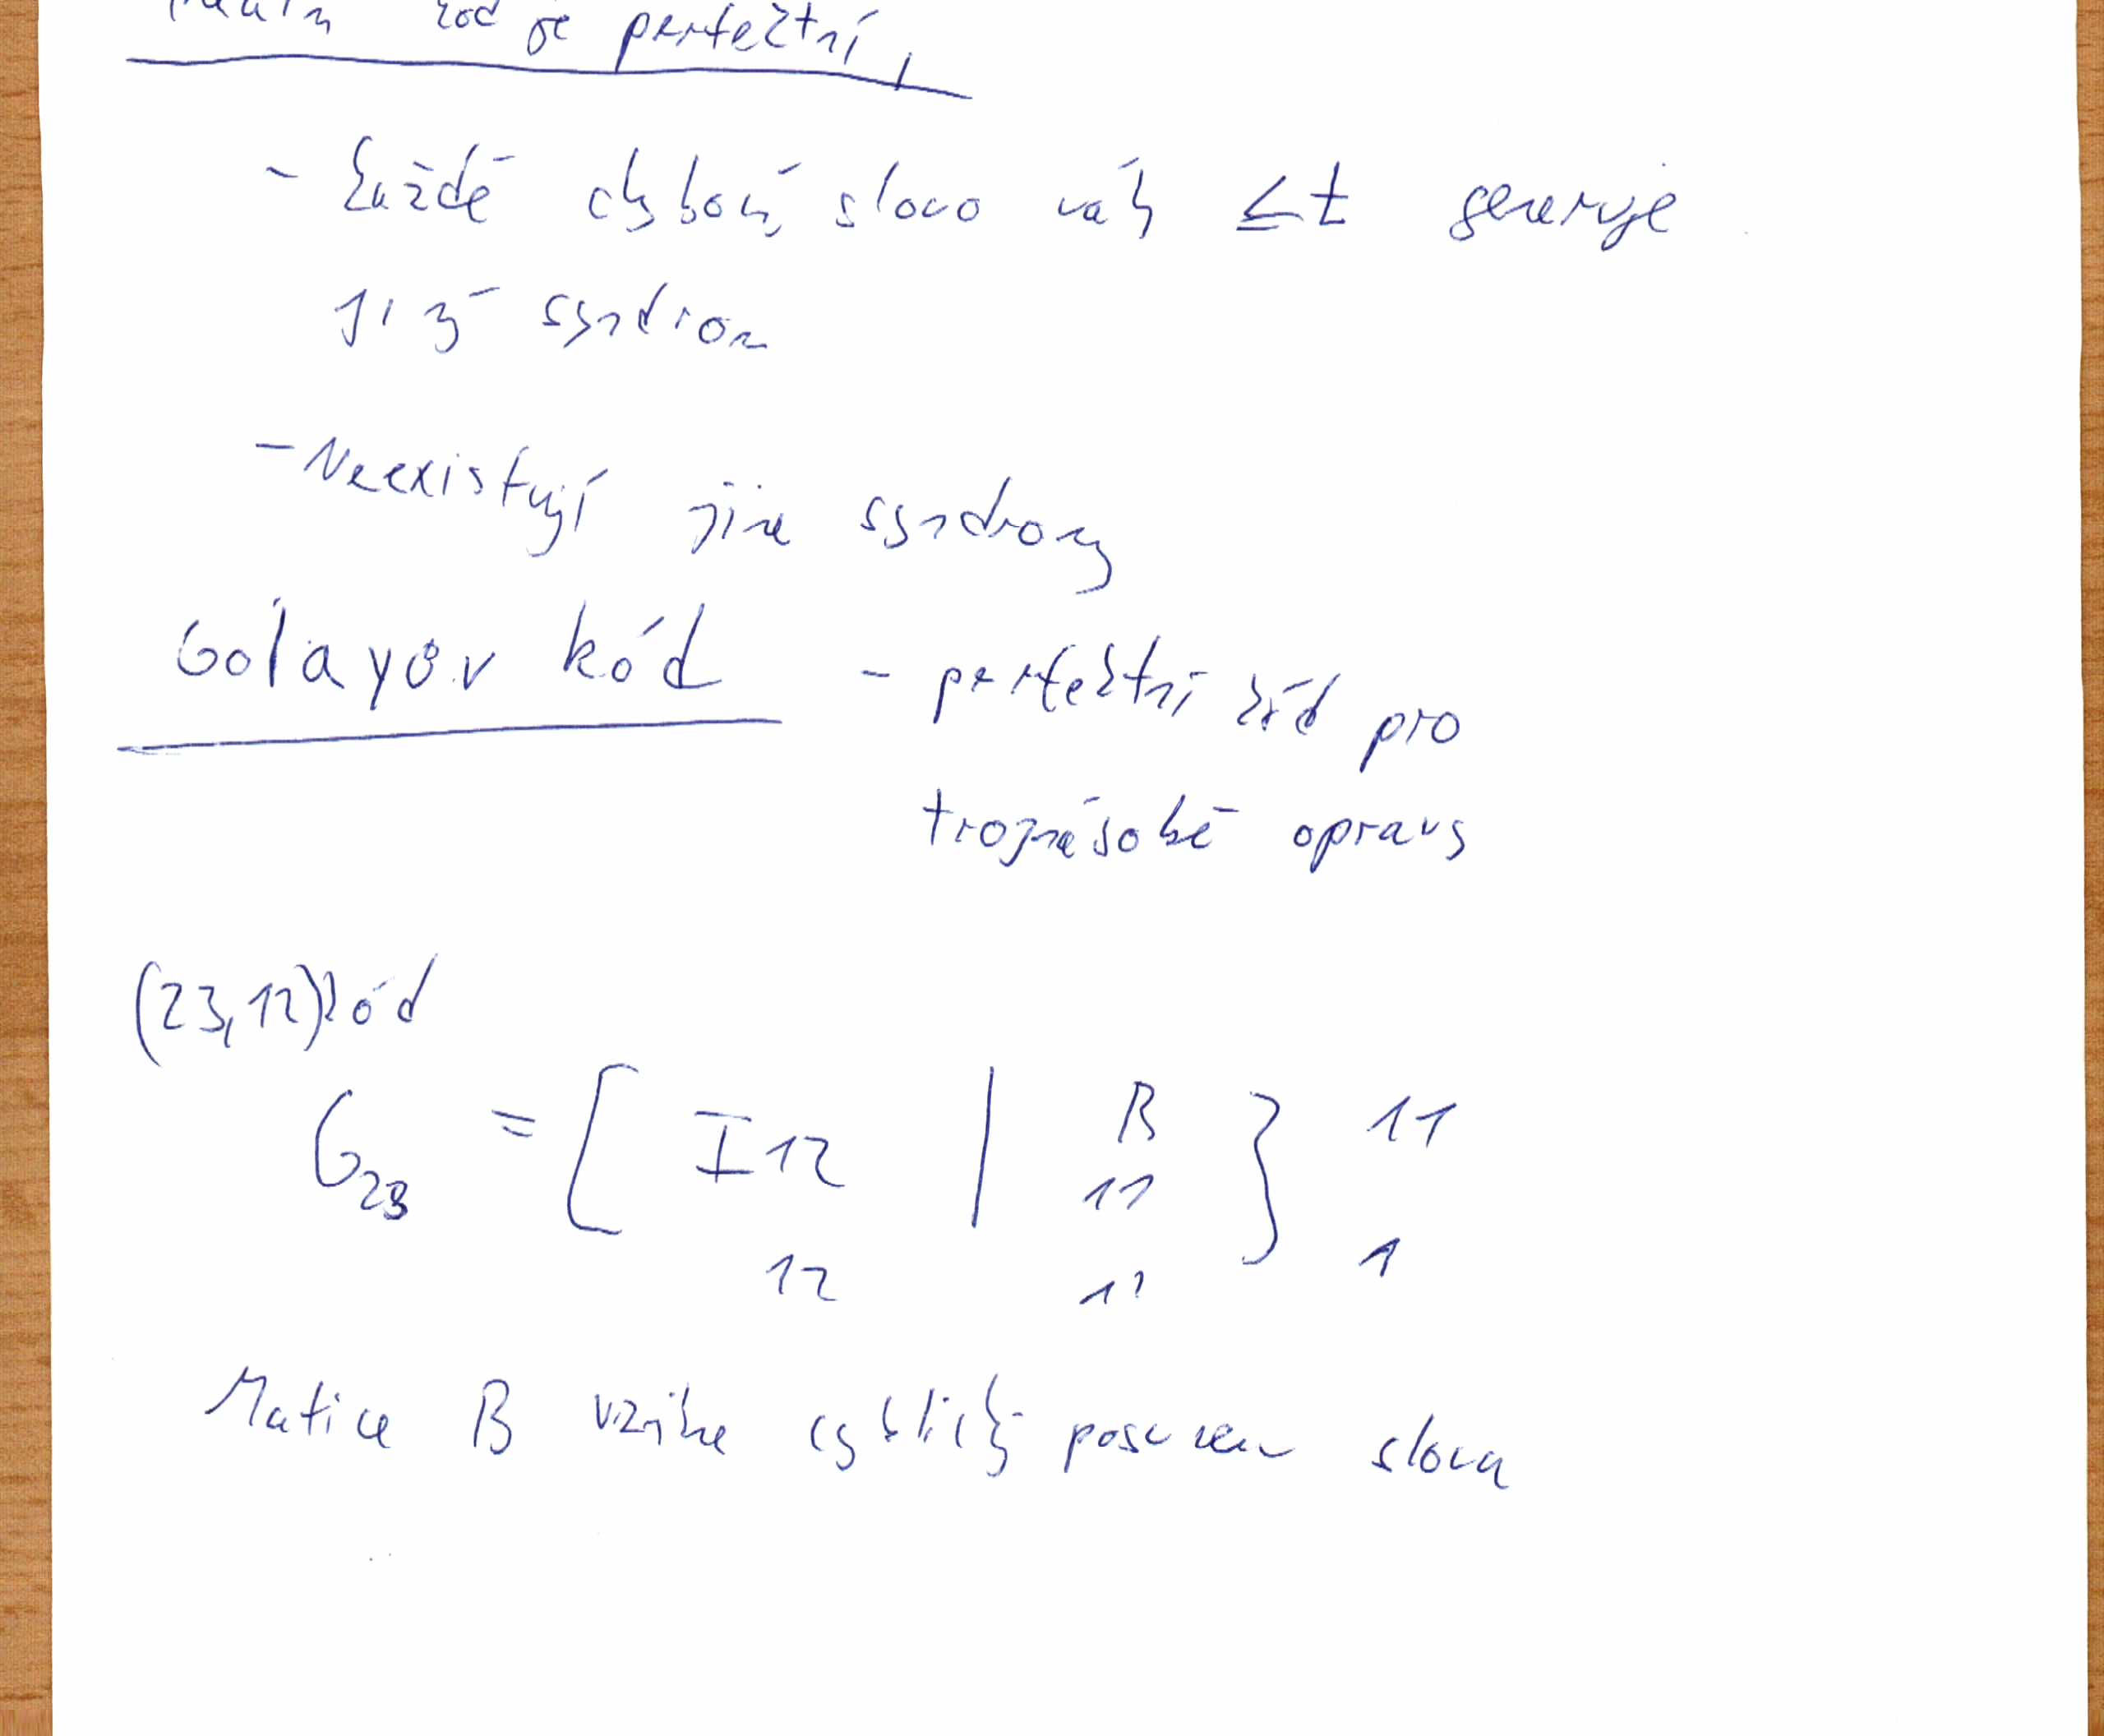 kód je perfektní,
- každé chybový slovo váhy ≤ t generuje
jiný syndrom
- Neexistují jiné syndromy
Golayův kód - perfektní kód pro
trojnásobé opravy
(23,12) kód
G23 = [ I12 | B ] 11
11
12 11 1
Matice B vznikne cyklický posunem slova